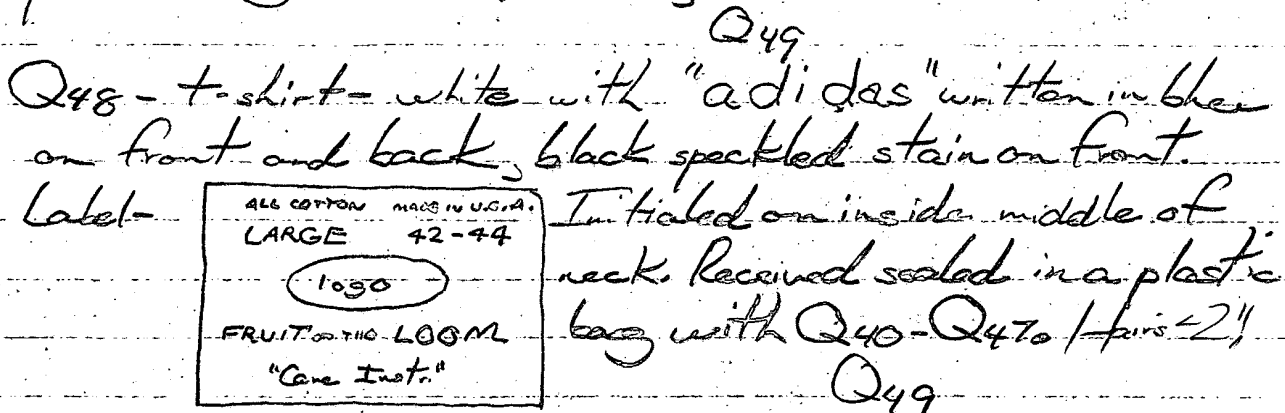 Q49
Q48 - t-shirt - white with "adidas" written in blue
on front and back, black speckled stain on front.
Label-
ALL COTTON MADE IN U.S.A.
LARGE 42-44
logo
FRUIT OF THE LOOM
"Care Instr."
Initialed on inside middle of
neck. Received sealed in a plastic
bag with Q40-Q47. Hairs <2"
Q49